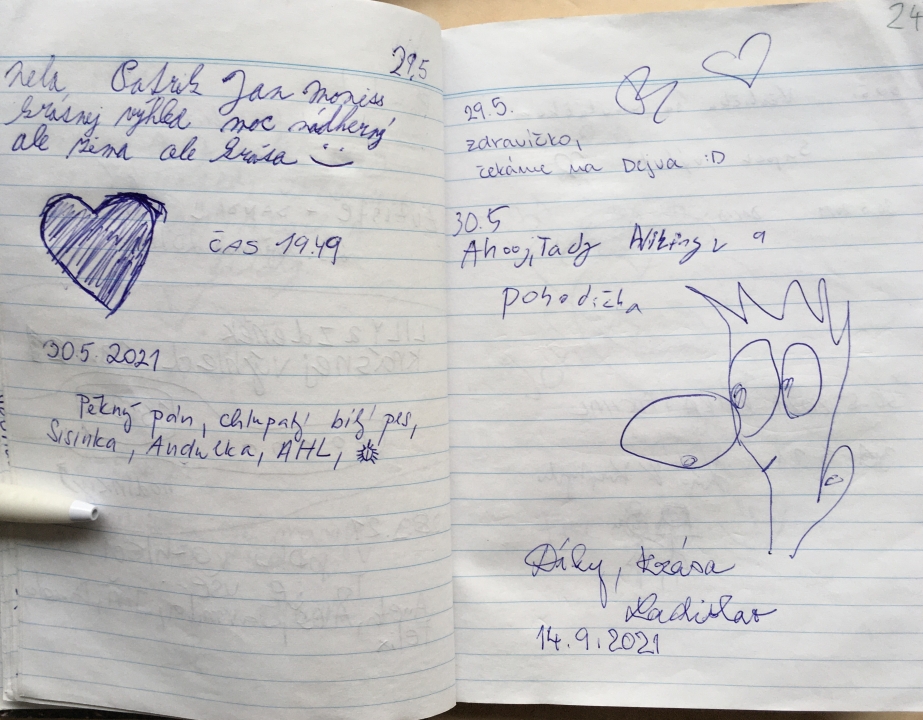 29.5
Nela, Patrik Jan
krásnej výhled moc nádherný
ale zima ale krása
ČAS 19.49
30.5. 2021
Pěkný pán, chlupatý bílý pes,
Sisinka, Andulka, AHL,
24
29.5.
zdravíčko,
čekáme na Dejva :D
30.5
Ahooj, Tady
pohodička
Díky, krása
Ladislav
14.9.2021